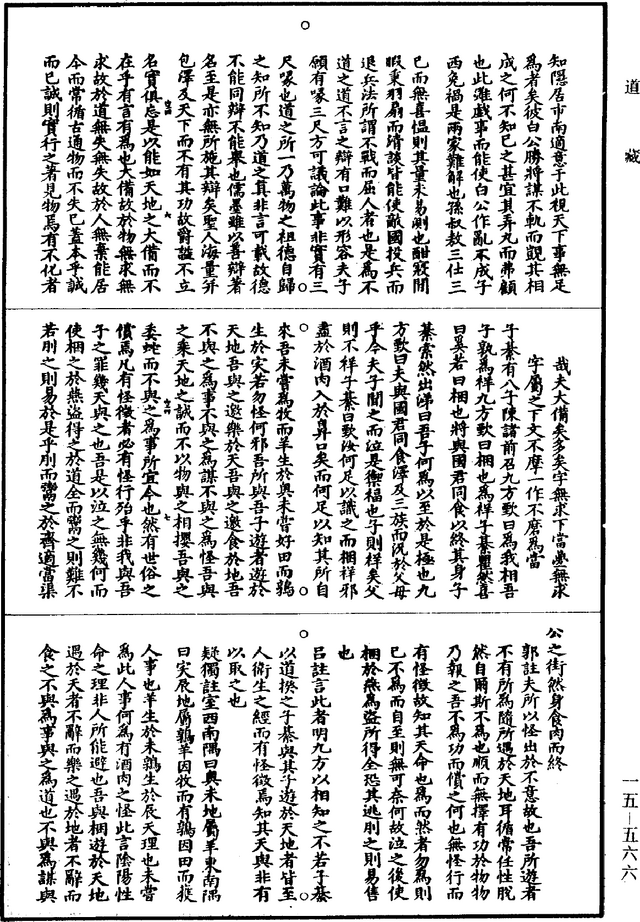 道藏
知隱居市南適意于此視天下事無足
為者矣彼白公勝將謀不軌而覬其相
成之何不知巳之甚宜其弄丸而弗顧
也此雖戲事而能使白公作亂不成子
西免禍是兩家難解也孫叔敖三仕三
巳而無喜慍則其量未易測也酣寢閒
暇秉羽扇而清談皆能使敵國投兵而
退兵法所謂不戰而屈人者也是為不
道之道不言之辯有口難以形容夫子
願有喙三尺方可議論此事非實有三
尺喙也道之所一乃萬物之祖德自歸
之知所不知乃道之真非言可載故德
不能同辯不能舉也儒墨雖以善辯著
名至是亦無所施其辯矣聖人海量并
包澤及天下而不有其功故爵諡不立
名實俱忘是以能如天地之大備而不
在乎有言有為也大備故於物無求無
求故於道無失無失故於人無棄能居
今而常循古適物而不失巳蓋本乎誠
而巳誠則實行之著見物焉有不化者
哉夫大備矣多矣字無求下當疊無求
字屬之下文不摩一作不磨為當
子綦有八子陳諸前召九方歅曰為我相吾
子孰為祥九方歅曰梱也為祥子綦瞿然喜
曰奚若曰梱也將與國君同食以終其身子
綦索然出涕曰吾子何為以至於是極也九
方歅曰夫與國君同食澤及三族而況於父母
乎今夫子聞之而泣是禦福也子則祥矣父
則不祥子綦曰歅汝何足以識之而梱祥邪
盡於酒肉入於鼻口矣而何足以知其所自
來吾未嘗為牧而羊生於奧未嘗好田而鶉
生於宎若勿怪何邪吾所與吾子遊者遊於
天地吾與之邀樂於天吾與之邀食於地吾
不與之為事不與之為謀不與之為怪吾與
之乘天地之誠而不以物與之相攖吾與之
委蛇而不與之為事所宜今也然有世俗之
償焉凡有怪徵者必有怪行殆乎非我與吾
子之罪幾天與之也吾是以泣之無幾何而
使梱之於燕盜得之於道全而鬻之則難不
若刖之則易於是乎刖而鬻之於齊適當渠
公之街然身食肉而終
郭註夫所以怪出於不意故也吾所遊者
不有所為隨所遇於天地耳循常任性脫
然自爾斯不為也順而無擇有功於物物
乃報之吾不為功而償之何也無怪行而
有怪徵故知其天命也為而然者勿為則
巳不為而自至則無可奈何故泣之後使
梱於燕為盜所得全恐其逃刖之則易售
也
呂註言此者明九方以相知之不若子綦
以道揆之子綦與其子遊於天地者皆至
人衛生之經而有怪徵焉知其天與非有
以取之也
疑獨註室西南隅曰奧未地屬羊東南隅
曰宎辰地屬鶉羊因牧而有鶉因田而獲
人事也羊生於未鶉生於辰天理也未嘗
為此人事何為有酒肉之怪此言陰陽性
命之理非人所能避也吾與梱遊於天地
遇於天者不辭而樂之遇於地者不辭而
食之不與為事與之為道也不與為謀與
一五—五六六